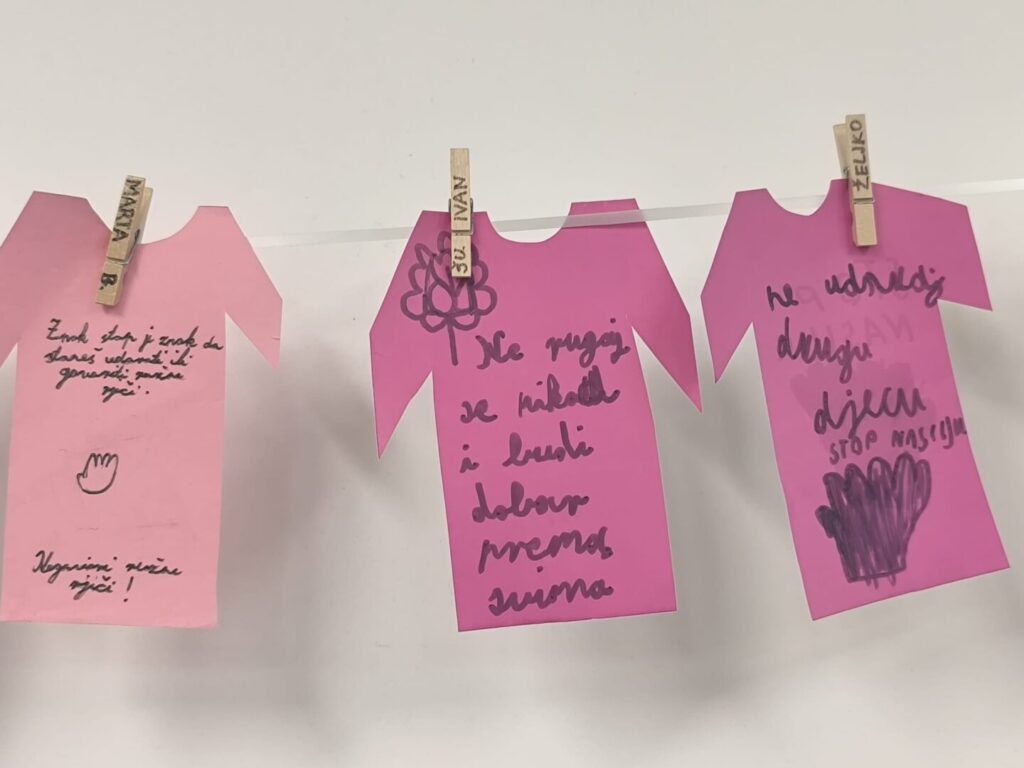 MARTA B.
Znak stop j znak da
staneš udarati ili
ružne
rječi.
ružne
rječi!
ŠU. IVAN
Ne rugaj
se nikom
i budi
dobar
prema
svima
ŽELJKO
ne udaraj
drugu
djecu
STOP NASILJU